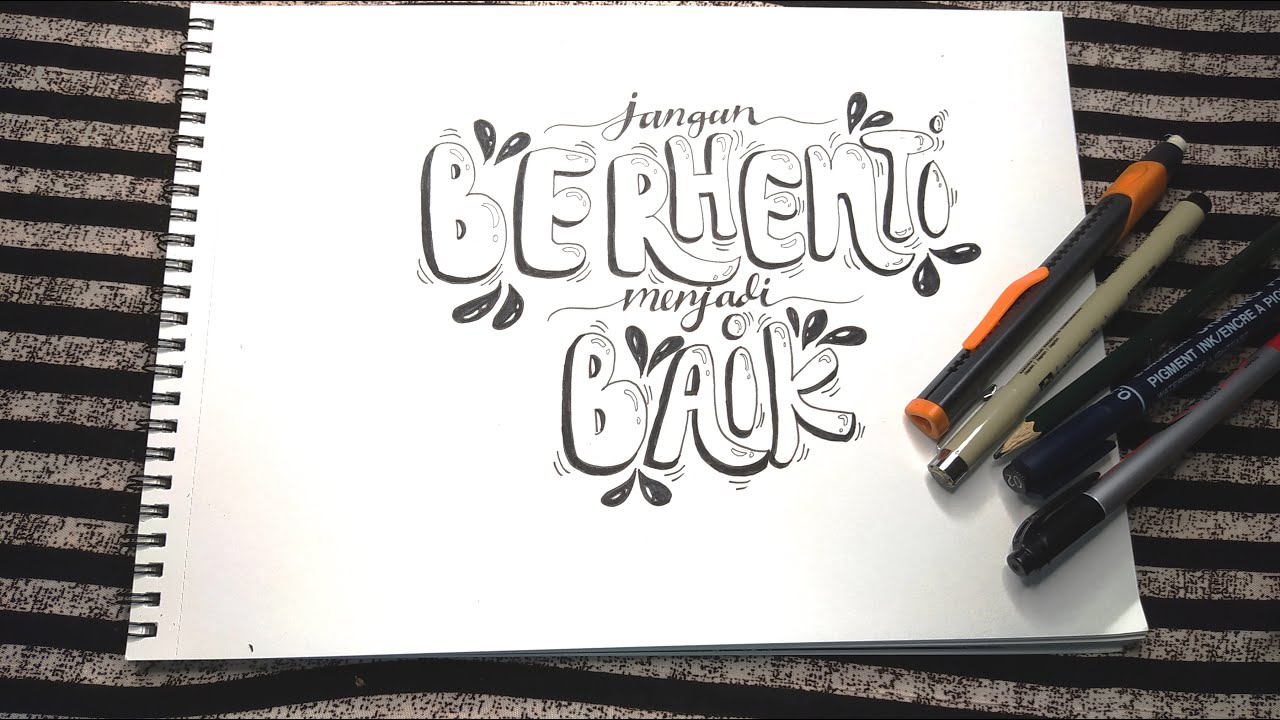 jangan
BERHENTi
menjadi
BAiK
PIGMENT INK/ENCRE A PI